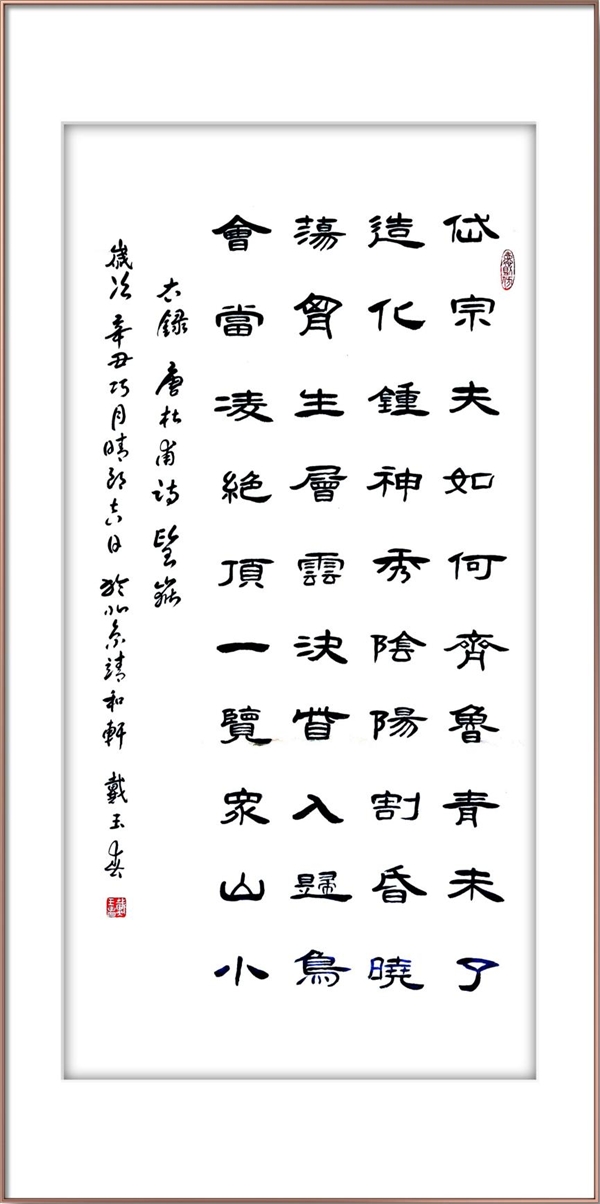 岱宗夫如何齊魯青未了
造化鍾神秀陰陽割昏曉
蕩胷生層雲決眥入歸鳥
會當凌絕頂一覽眾山小
右錄唐杜甫詩望嶽
歲次辛丑巧月晴朗吉日於北京靖和軒戴玉春